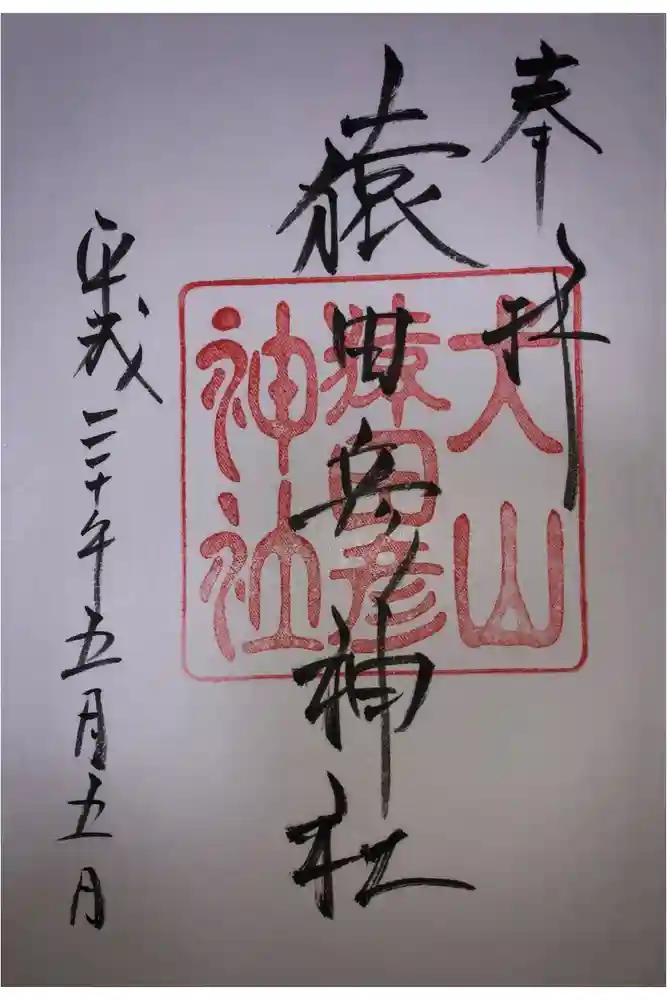 奉拝
猿田彦神社
平成三十年五月五日
大山
猿田彦
神社